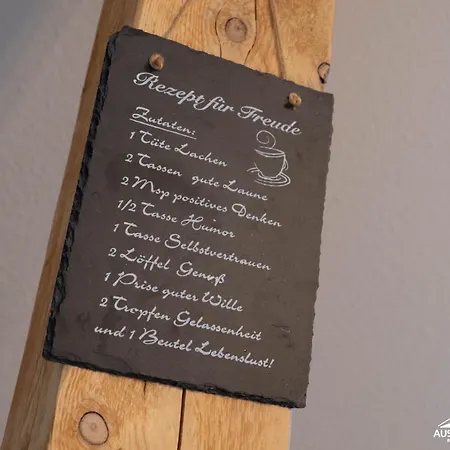 Rezept für Freude
Zutaten:
1 Tüte Lachen
2 Tassen gute Laune
2 Msp positives Denken
1/2 Tasse Humor
1 Tasse Selbstvertrauen
2 Löffel Genuß
1 Prise guter Wille
2 Tropfen Gelassenheit
und 1 Beutel Lebenslust!
AUS